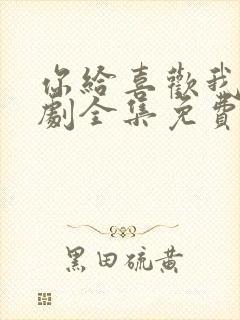 你給喜歡我
劇全集免費
黑田硫黃